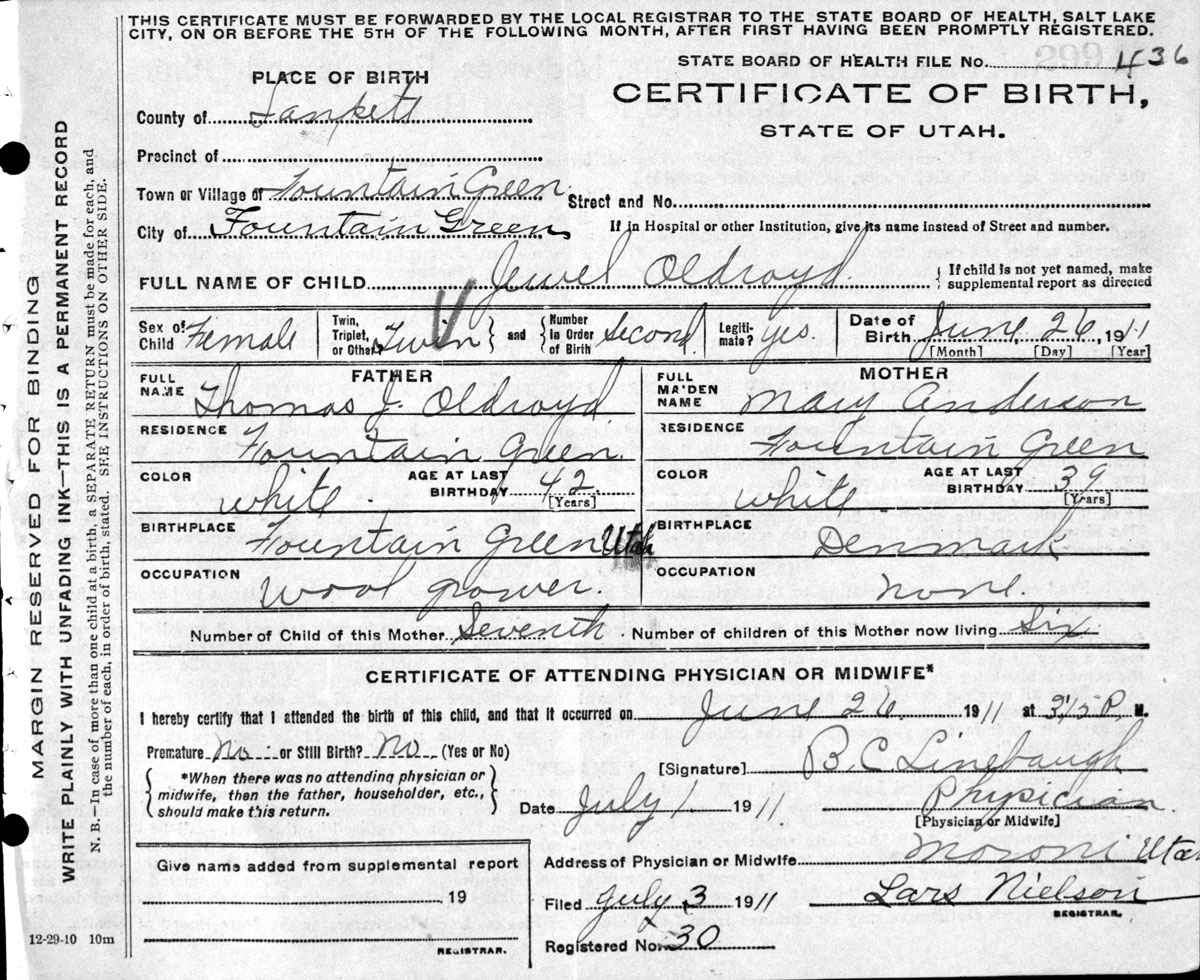 THIS CERTIFICATE MUST BE FORWARDED BY THE LOCAL REGISTRAR TO THE STATE BOARD OF HEALTH, SALT LAKE
CITY, ON OR BEFORE THE 5TH OF THE FOLLOWING MONTH, AFTER FIRST HAVING BEEN PROMPTLY REGISTERED.
MARGIN RESERVED FOR BINDING
WRITE PLAINLY WITH UNFADING INK—THIS IS A PERMANENT RECORD
N. B.—In case of more than one child at a birth, a SEPARATE RETURN must be made for each, and
the number of each, in order of birth, stated. SEE INSTRUCTIONS ON OTHER SIDE.
STATE BOARD OF HEALTH FILE No. 436
PLACE OF BIRTH
CERTIFICATE OF BIRTH,
STATE OF UTAH.
County of Sanpete
Precinct of
Town or Village of Fountain Green
Street and No.
City of Fountain Green
If in Hospital or other Institution, give its name instead of Street and number.
FULL NAME OF CHILD Jewel Oldroyd { If child is not yet named, make
supplemental report as directed
Sex of Child Female
Twin, Triplet, or Other? Twin } and { Number In Order of Birth Second
Legitimate? yes
Date of Birth June, 26, 1911
[Month] [Day] [Year]
FATHER
FULL NAME Thomas J. Oldroyd
RESIDENCE Fountain Green.
COLOR white. AGE AT LAST BIRTHDAY 42 [Years]
BIRTHPLACE Fountain Green Utah
OCCUPATION Wool grower
MOTHER
FULL MAIDEN NAME Mary Anderson
RESIDENCE Fountain Green
COLOR white AGE AT LAST BIRTHDAY 39 [Years]
BIRTHPLACE Denmark
OCCUPATION none
Number of Child of this Mother Seventh. Number of children of this Mother now living Six
CERTIFICATE OF ATTENDING PHYSICIAN OR MIDWIFE*
I hereby certify that I attended the birth of this child, and that it occurred on June 26 1911 at 315 P. M.
Premature No or Still Birth? No (Yes or No)
{ *When there was no attending physician or
midwife, then the father, householder, etc.,
should make this return. }
[Signature] B. C. Linebaugh
Date July 1 1911 Physician.
[Physician or Midwife]
Give name added from supplemental report
19
REGISTRAR.
Address of Physician or Midwife Moroni Utah
Filed July 3 1911 Lars Nielson
REGISTRAR.
Registered No. 30
12-29-10 10m